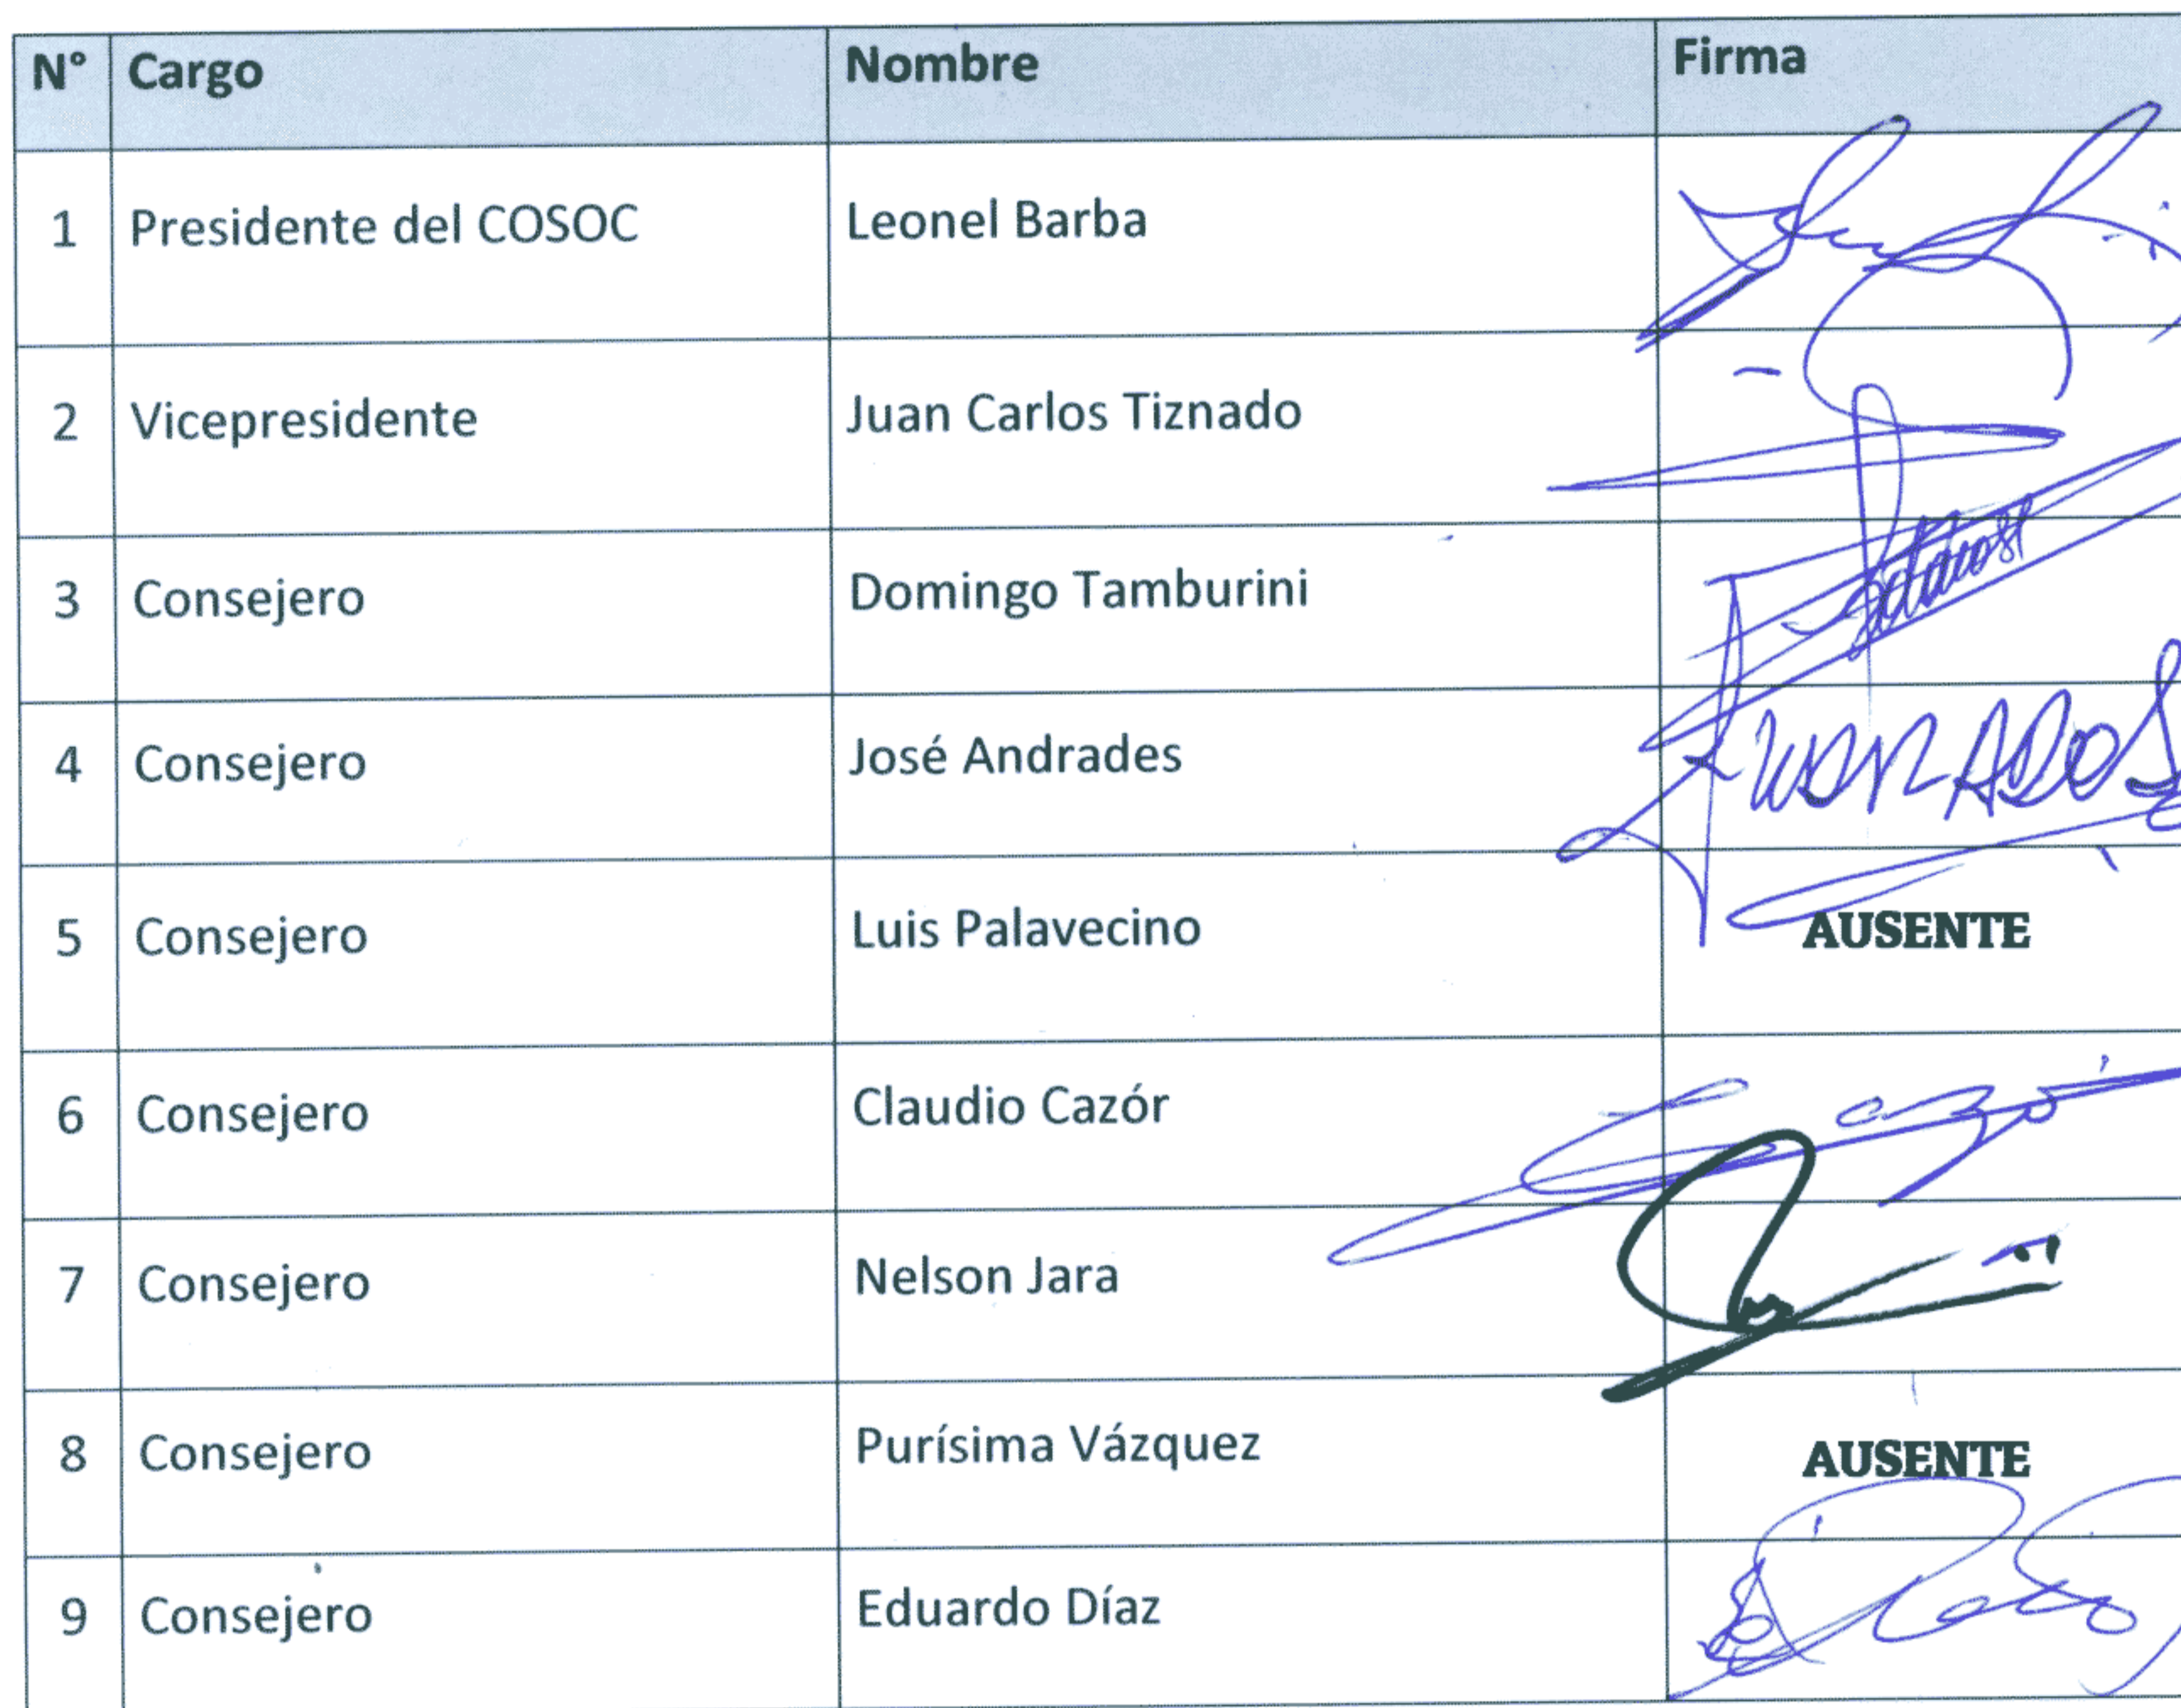 N° Cargo Nombre Firma
1 Presidente del COSOC Leonel Barba
2 Vicepresidente Juan Carlos Tiznado
3 Consejero Domingo Tamburini
4 Consejero José Andrades
5 Consejero Luis Palavecino AUSENTE
6 Consejero Claudio Cazór
7 Consejero Nelson Jara
8 Consejero Purísima Vázquez AUSENTE
9 Consejero Eduardo Díaz